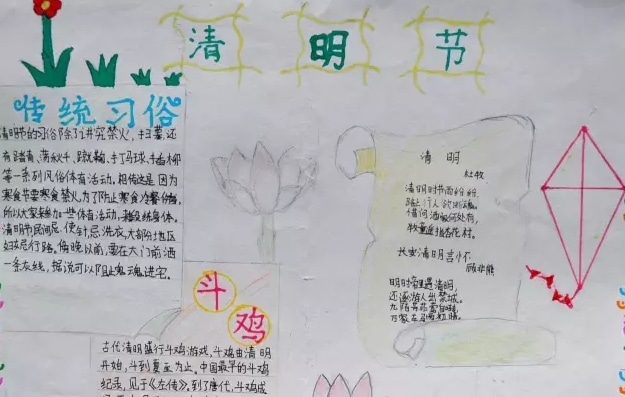 清明节
传统习俗
清明节的习俗除了讲究禁火、扫墓,还
有踏青、荡秋千、蹴鞠、打马球、插柳
等一系列风俗体育活动。相传这是因为
寒食节要寒食禁火,为了防止寒食冷餐伤身,
所以大家参加一些体育活动,锻炼身体。
清明节,民间忌使针,忌洗衣,大部分地区
妇女忌行路。傍晚以前,要在大门前洒
一条灰线,据说可以阻止鬼魂进宅。
斗鸡
古代清明盛行斗鸡游戏,斗鸡由清明
开始,斗到夏至为止。中国最早的斗鸡
纪录,见于《左传》,到了唐代,斗鸡成
清明
杜牧
清明时节雨纷纷,
路上行人欲断魂。
借问酒家何处有,
牧童遥指杏花村。
长安清明言怀
顾非熊
明时帝里遇清明,
还逐游人出禁城。
九陌芳菲莺自啭,
万家车马雨初晴。